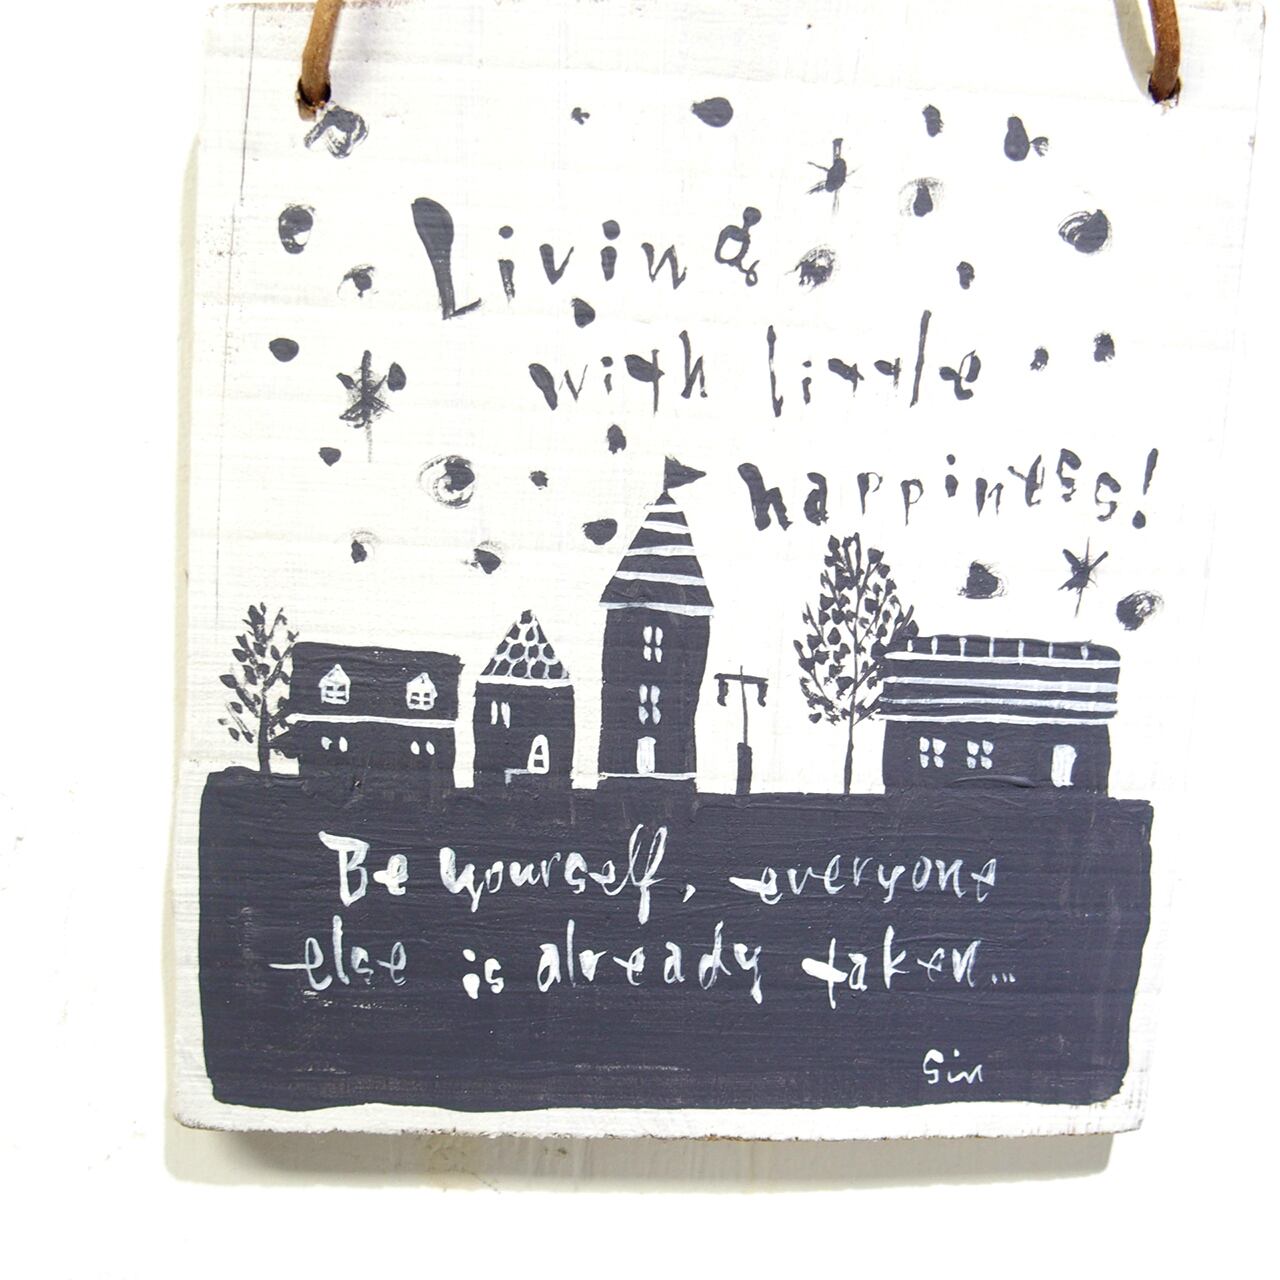 Living
with little
happiness!
Be yourself, everyone
else is already taken...
Sin